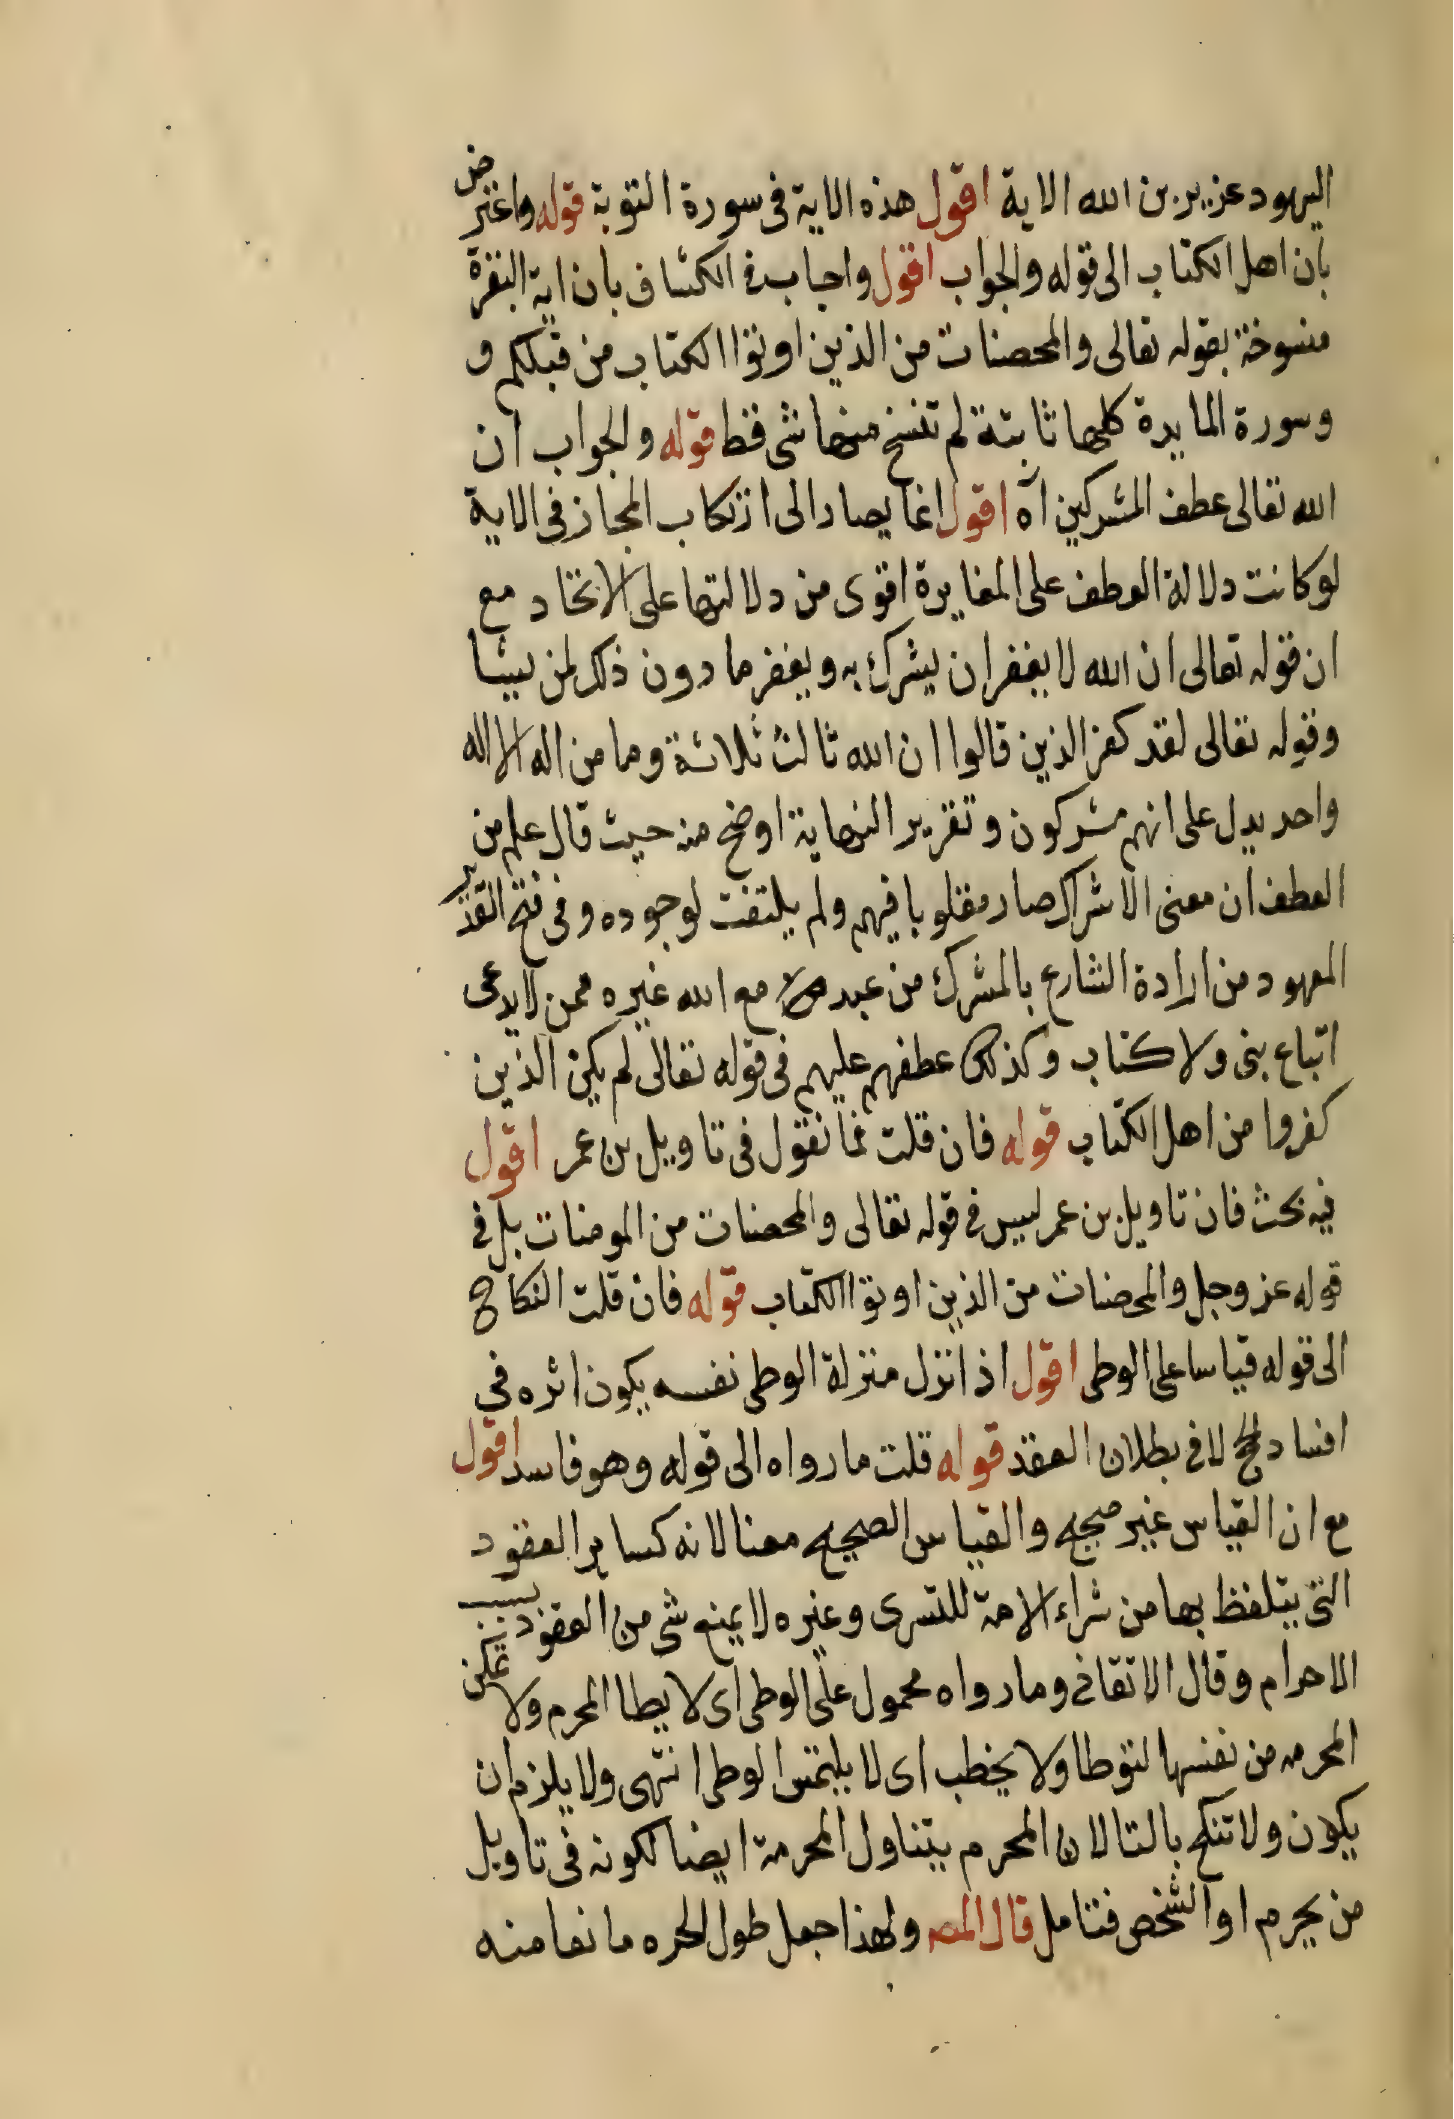 اليهود عزير بن الله الاية اقول هذه الاية فى سورة التوبة قوله واعترض
بان اهل الكتاب الى قوله والجواب اقول واجاب فى الكشاف بان اية البقرة
منسوخة بقوله تعالى والمحصنات من الذين اوتوا الكتاب من قبلكم و
وسورة المايدة كلها ثابتة لم تنسخ منها شى قط قوله والجواب ان
الله تعالى عطف المشركين آه اقول انما يصار الى ارتكاب المجاز فى الاية
لو كانت دلالة العطف على المغايرة اقوى من دلالتها على الاتحاد مع
ان قوله تعالى ان الله لا يغفر ان يشرك به ويغفر ما دون ذلك لمن يشا
وقوله تعالى لقد كفر الذين قالوا ان الله ثالث ثلاثة وما من اله الا اله
واحد يدل على انهم مشركون وتقرير النهاية اوضح منه حيث قال علم من
العطف ان معنى الاشراك صار مغلوبا فيهم ولم يلتفت لوجوده وفى فتح القدير
المعهود من ارادة الشارع بالمشرك من عبد مع الله غيره ممن لا يدعى
اتباع بنى ولا كتاب وكذلك عطفهم عليهم فى قوله تعالى لم يكن الذين
كفروا من اهل الكتاب قوله فان قلت فما نقول فى تاويل بن عمر اقول
فيه بحث فان تاويل بن عمر ليس فى قوله تعالى والمحصنات من المومنات بل فى
قوله عز وجل والمحصنات من الذين اوتوا الكتاب قوله فان قلت النكاح
الى قوله قياسا على الوطى اقول اذ انزل منزلة الوطى نفسه يكون اثره فى
افساد الحج لا فى بطلان العقد قوله قلت ما رواه الى قوله وهو فاسد اقول
مع ان القياس غير صحيح والقياس الصحيح معنا لانه كساير العقود
التى يتلفظ بها من شراء الامة للتسرى وغيره لا يمنع شى من العقود بسبب
الاحرام وقال الاتقانى وما رواه محمول على الوطى اى لا يطا المحرم ولا تمكن
المحرمه من نفسها لتوطا ولا يخطب اى لا يلتمس الوطى انتهى ولا يلزم ان
يكون ولا تنكح بالتا لان المحرم يتناول المحرمة ايضا لكونه فى تاويل
من يحرم او الشخص فتامل قال المصـ ولهذا جعل طول الحره مانعا منه